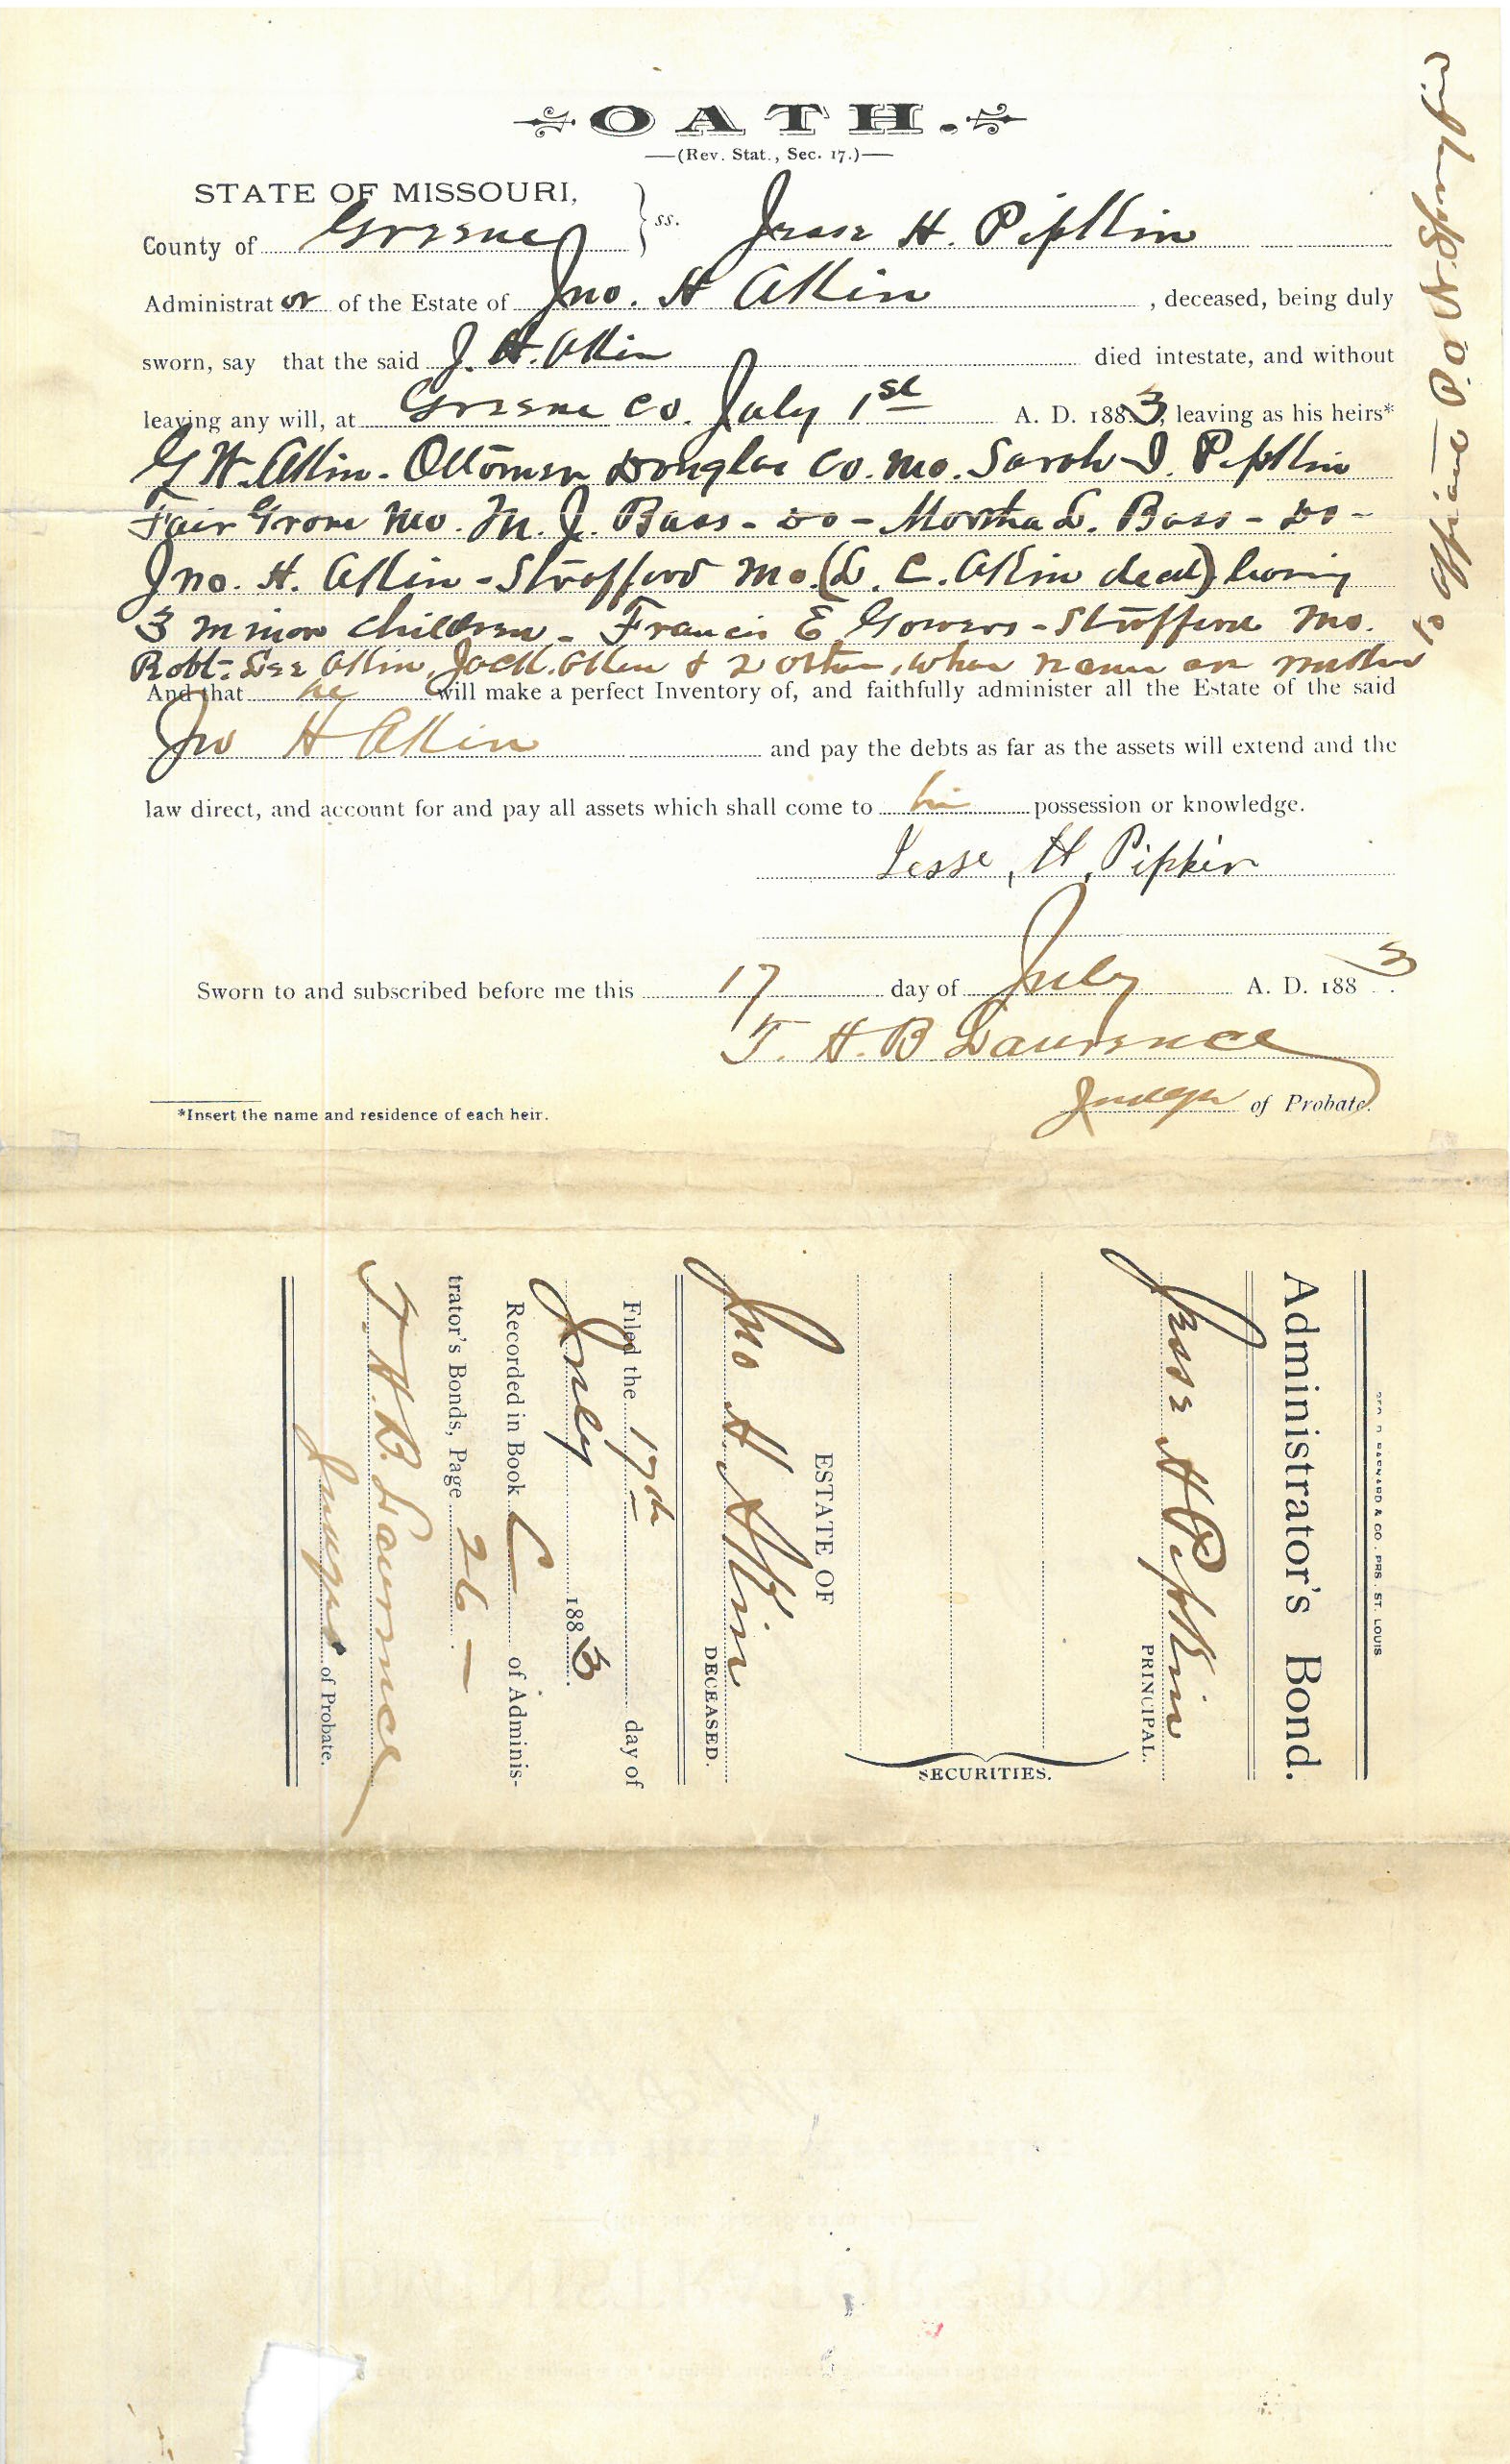 OATH.
(Rev. Stat., Sec. 17.)
STATE OF MISSOURI,
County of Greene } ss. Jesse H. Pipkin
Administrator of the Estate of Jno. H Akin , deceased, being duly
sworn, say that the said J. H. Akin died intestate, and without
leaving any will, at Greene Co. July 1st A. D. 1883, leaving as his heirs*
G W. Akin - Douglas Co. Mo. Sarah J. Pipkin
Fair Grove Mo. M. J. Bass - Do - Martha L. Bass - Do -
Jno. H. Akin - Strafford Mo. (L. C. Akin dead) having
3 minor children - Francis E Gowers - Strafford Mo.
Robt. Lee Akin, Jack Akin & 2 other, whose names are unknown
to affiant P.O. Springfield
And that he will make a perfect Inventory of, and faithfully administer all the Estate of the said
Jno H Akin and pay the debts as far as the assets will extend and the
law direct, and account for and pay all assets which shall come to his possession or knowledge.
Jesse, H, Pipkin
Sworn to and subscribed before me this 17 day of July A. D. 1883.
T. H. B Lawrence
Judge of Probate.
*Insert the name and residence of each heir.
BARNARD & CO. PRS. ST. LOUIS
Administrator's Bond.
Jesse H Pipkin
PRINCIPAL.
SECURITIES.
ESTATE OF
Jno H Akin
DECEASED.
Filed the 17th day of
July 1883.
Recorded in Book C of Adminis-
trator's Bonds, Page 26 -
T. H. B. Lawrence
Judge of Probate.